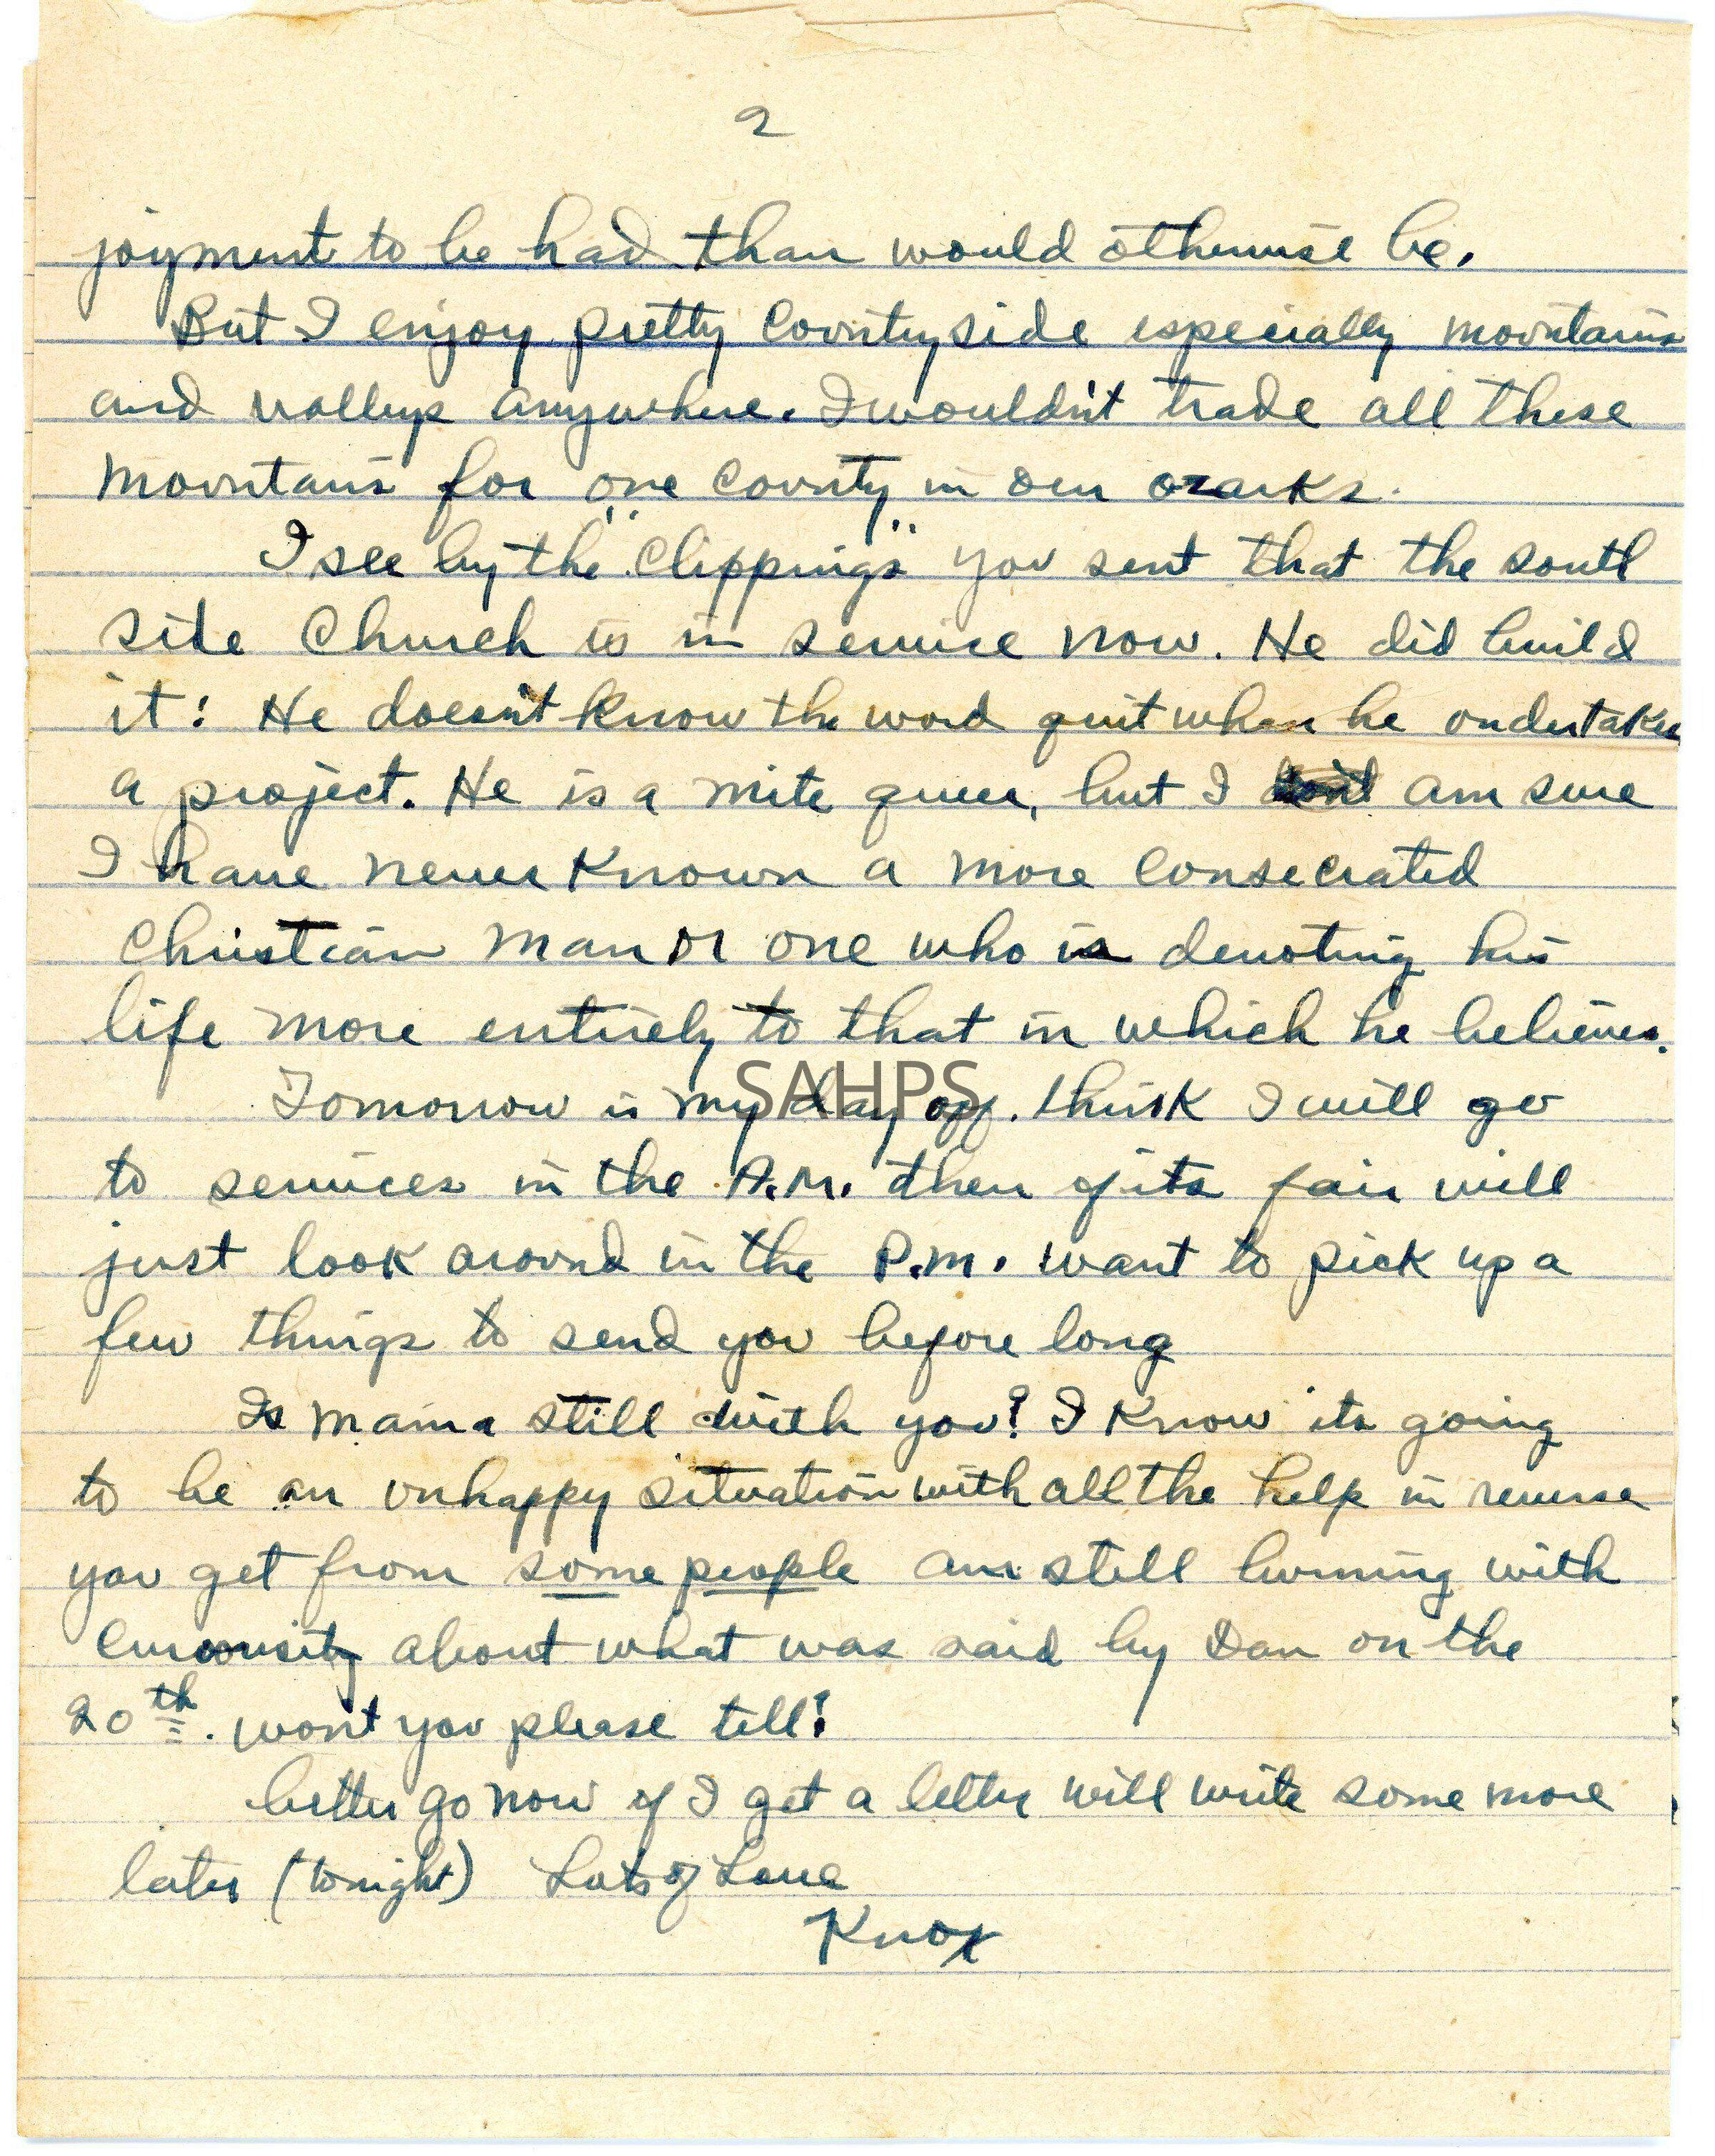 2
joyment to be had than would otherwise be.
But I enjoy pretty countryside especially mountains
and valleys anywhere. I wouldn't trade all these
mountains for one county in our ozarks.
I see by the "clippings" you sent that the south
side Church is in service now. He did build
it! He doesn't know the word quit when he undertakes
a project. He is a mite queer, but I don't am sure
I have never known a more consecrated
Christian man or one who is devoting his
life more entirely to that in which he believes.
SAHPS
Tomorrow is my day off. think I will go
to services in the A.M. then if its fair will
just look around in the P.M. want to pick up a
few things to send you before long
Is mama still with you? I know its going
to be an unhappy situation with all the help in reverse
you get from some people am still burning with
curousity about what was said by Dan on the
20th. wont you please tell?
better go now if I get a letter will write some more
later (tonight) Lots of Love
Knox